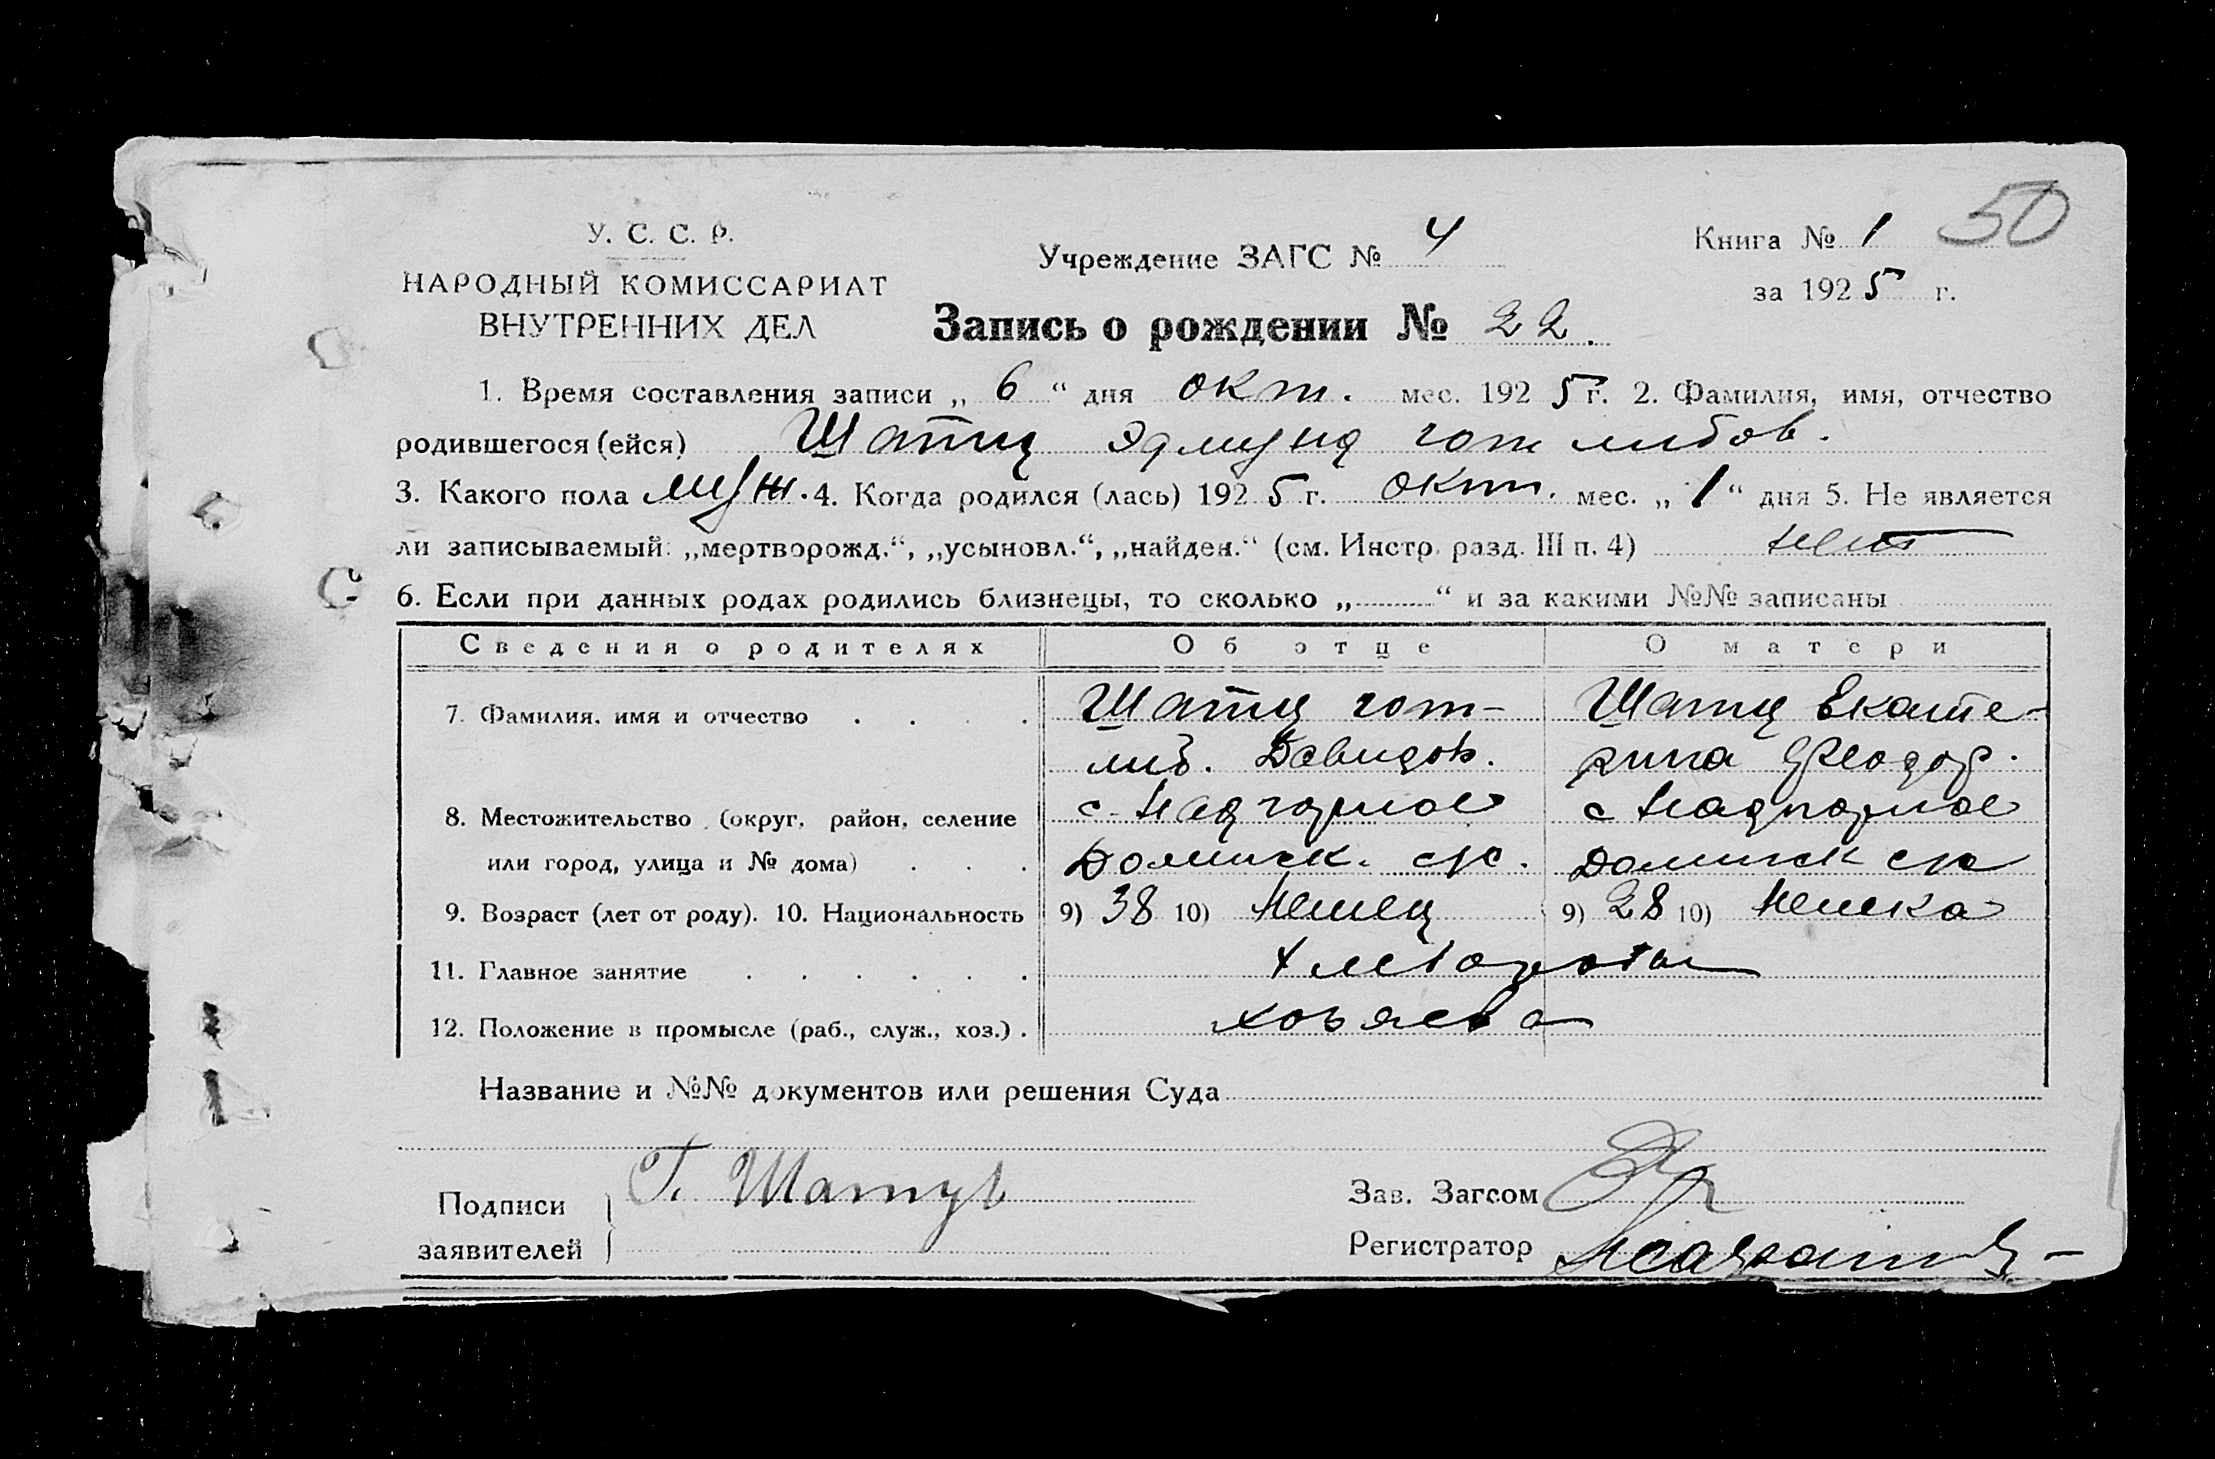 50
У. С. С. Р.
НАРОДНЫЙ КОМИССАРИАТ
ВНУТРЕННИХ ДЕЛ
Учреждение ЗАГС № 4
Книга № 1
за 1925 г.
Запись о рождении № 22.
1. Время составления записи „ 6 “ дня окт. мес. 1925 г. 2. Фамилия, имя, отчество
родившегося (ейся) Шатц Эдмунд Готлибов.
3. Какого пола муж. 4. Когда родился (лась) 1925 г. окт. мес. „ 1 “ дня 5. Не является
ли записываемый: „мертворожд.“, „усыновл.“, „найден.“ (см. Инстр. разд. III п. 4) нет
6. Если при данных родах родились близнецы, то сколько „ “ и за какими №№ записаны
Сведения о родителях Об отце О матери
7. Фамилия, имя и отчество . . . . Шатц Гот- Шатц Екате-
либ. Давидов. рина Феодор.
8. Местожительство (округ, район, селение с. Надгорное с Надгорное
или город, улица и № дома) . . . с/с. с/с
9. Возраст (лет от роду). 10. Национальность 9) 38 10) Немец 9) 28 10) Немка
11. Главное занятие . . . . . .
12. Положение в промысле (раб., служ., хоз.) . хозяева
Название и №№ документов или решения Суда
Подписи Г. Шатцъ Зав. Загсом
заявителей Регистратор